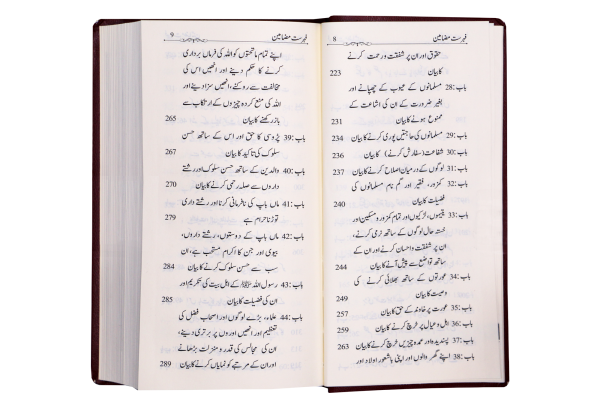 8 فہرست مضامین
حقوق اور ان پر شفقت و رحمت کرنے
کا بیان 223
باب :28 مسلمانوں کے عیوب کے چھپانے اور
بغیر ضرورت کے ان کی اشاعت کے
ممنوع ہونے کا بیان 231
باب :29 مسلمانوں کی حاجتیں پوری کرنے کا بیان 234
باب :30 شفاعت (سفارش کرنے) کا بیان 236
باب :31 لوگوں کے درمیان اصلاح کرنے کا بیان 237
باب :32 کمزور، فقیر اور گم نام مسلمانوں کی
فضیلت کا بیان 240
باب :33 یتیموں، لڑکیوں اور تمام کمزور و مسکین اور
خستہ حال لوگوں کے ساتھ نرمی کرنے،
ان پر شفقت و احسان کرنے اور ان کے
ساتھ تواضع سے پیش آنے کا بیان 244
باب :34 عورتوں کے ساتھ بھلائی کرنے کی
وصیت کا بیان 249
باب :35 عورت پر خاوند کے حق کا بیان 257
باب :36 اہل و عیال پر خرچ کرنے کا بیان 259
باب :37 پسندیدہ اور عمدہ چیزیں خرچ کرنے کا بیان 263
باب :38 اپنے گھر والوں اور اپنی باشعور اولاد اور
فہرست مضامین 9
اپنے تمام ماتحتوں کو اللہ کی فرماں برداری
کرنے کا حکم دینے اور انھیں اس کی
مخالفت سے روکنے، انھیں سزا دینے اور
اللہ کی منع کردہ چیزوں کے ارتکاب سے
باز رکھنے کا بیان 265
باب :39 پڑوسی کا حق اور اس کے ساتھ حسن
سلوک کی تاکید کا بیان 267
باب :40 والدین کے ساتھ حسن سلوک اور رشتے
داروں سے صلہ رحمی کرنے کا بیان 270
باب :41 ماں باپ کی نافرمانی کرنا اور رشتے داری
توڑنا حرام ہے 279
باب :42 ماں باپ کے دوستوں، رشتے داروں،
بیوی اور جن کا اکرام مستحب ہے، ان
سب سے حسن سلوک کرنے کا بیان 284
باب :43 رسول اللہ ﷺ کے اہل بیت کی تکریم اور
ان کی فضیلت کا بیان 285
باب :44 علماء، بڑے لوگوں اور اصحاب فضل کی
تعظیم اور انھیں اوروں پر برتری دینے،
ان کی مجالس کی قدر و منزلت بڑھانے
اور ان کے مرتبے کو نمایاں کرنے کا بیان 289